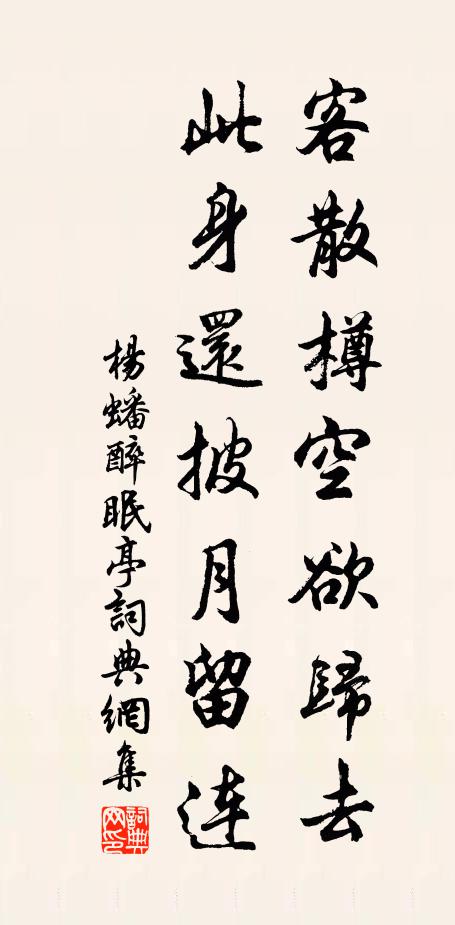 客散樽空欲歸去
此身還披月留連
楊蟠醉眠亭詞典網集
詞典
網